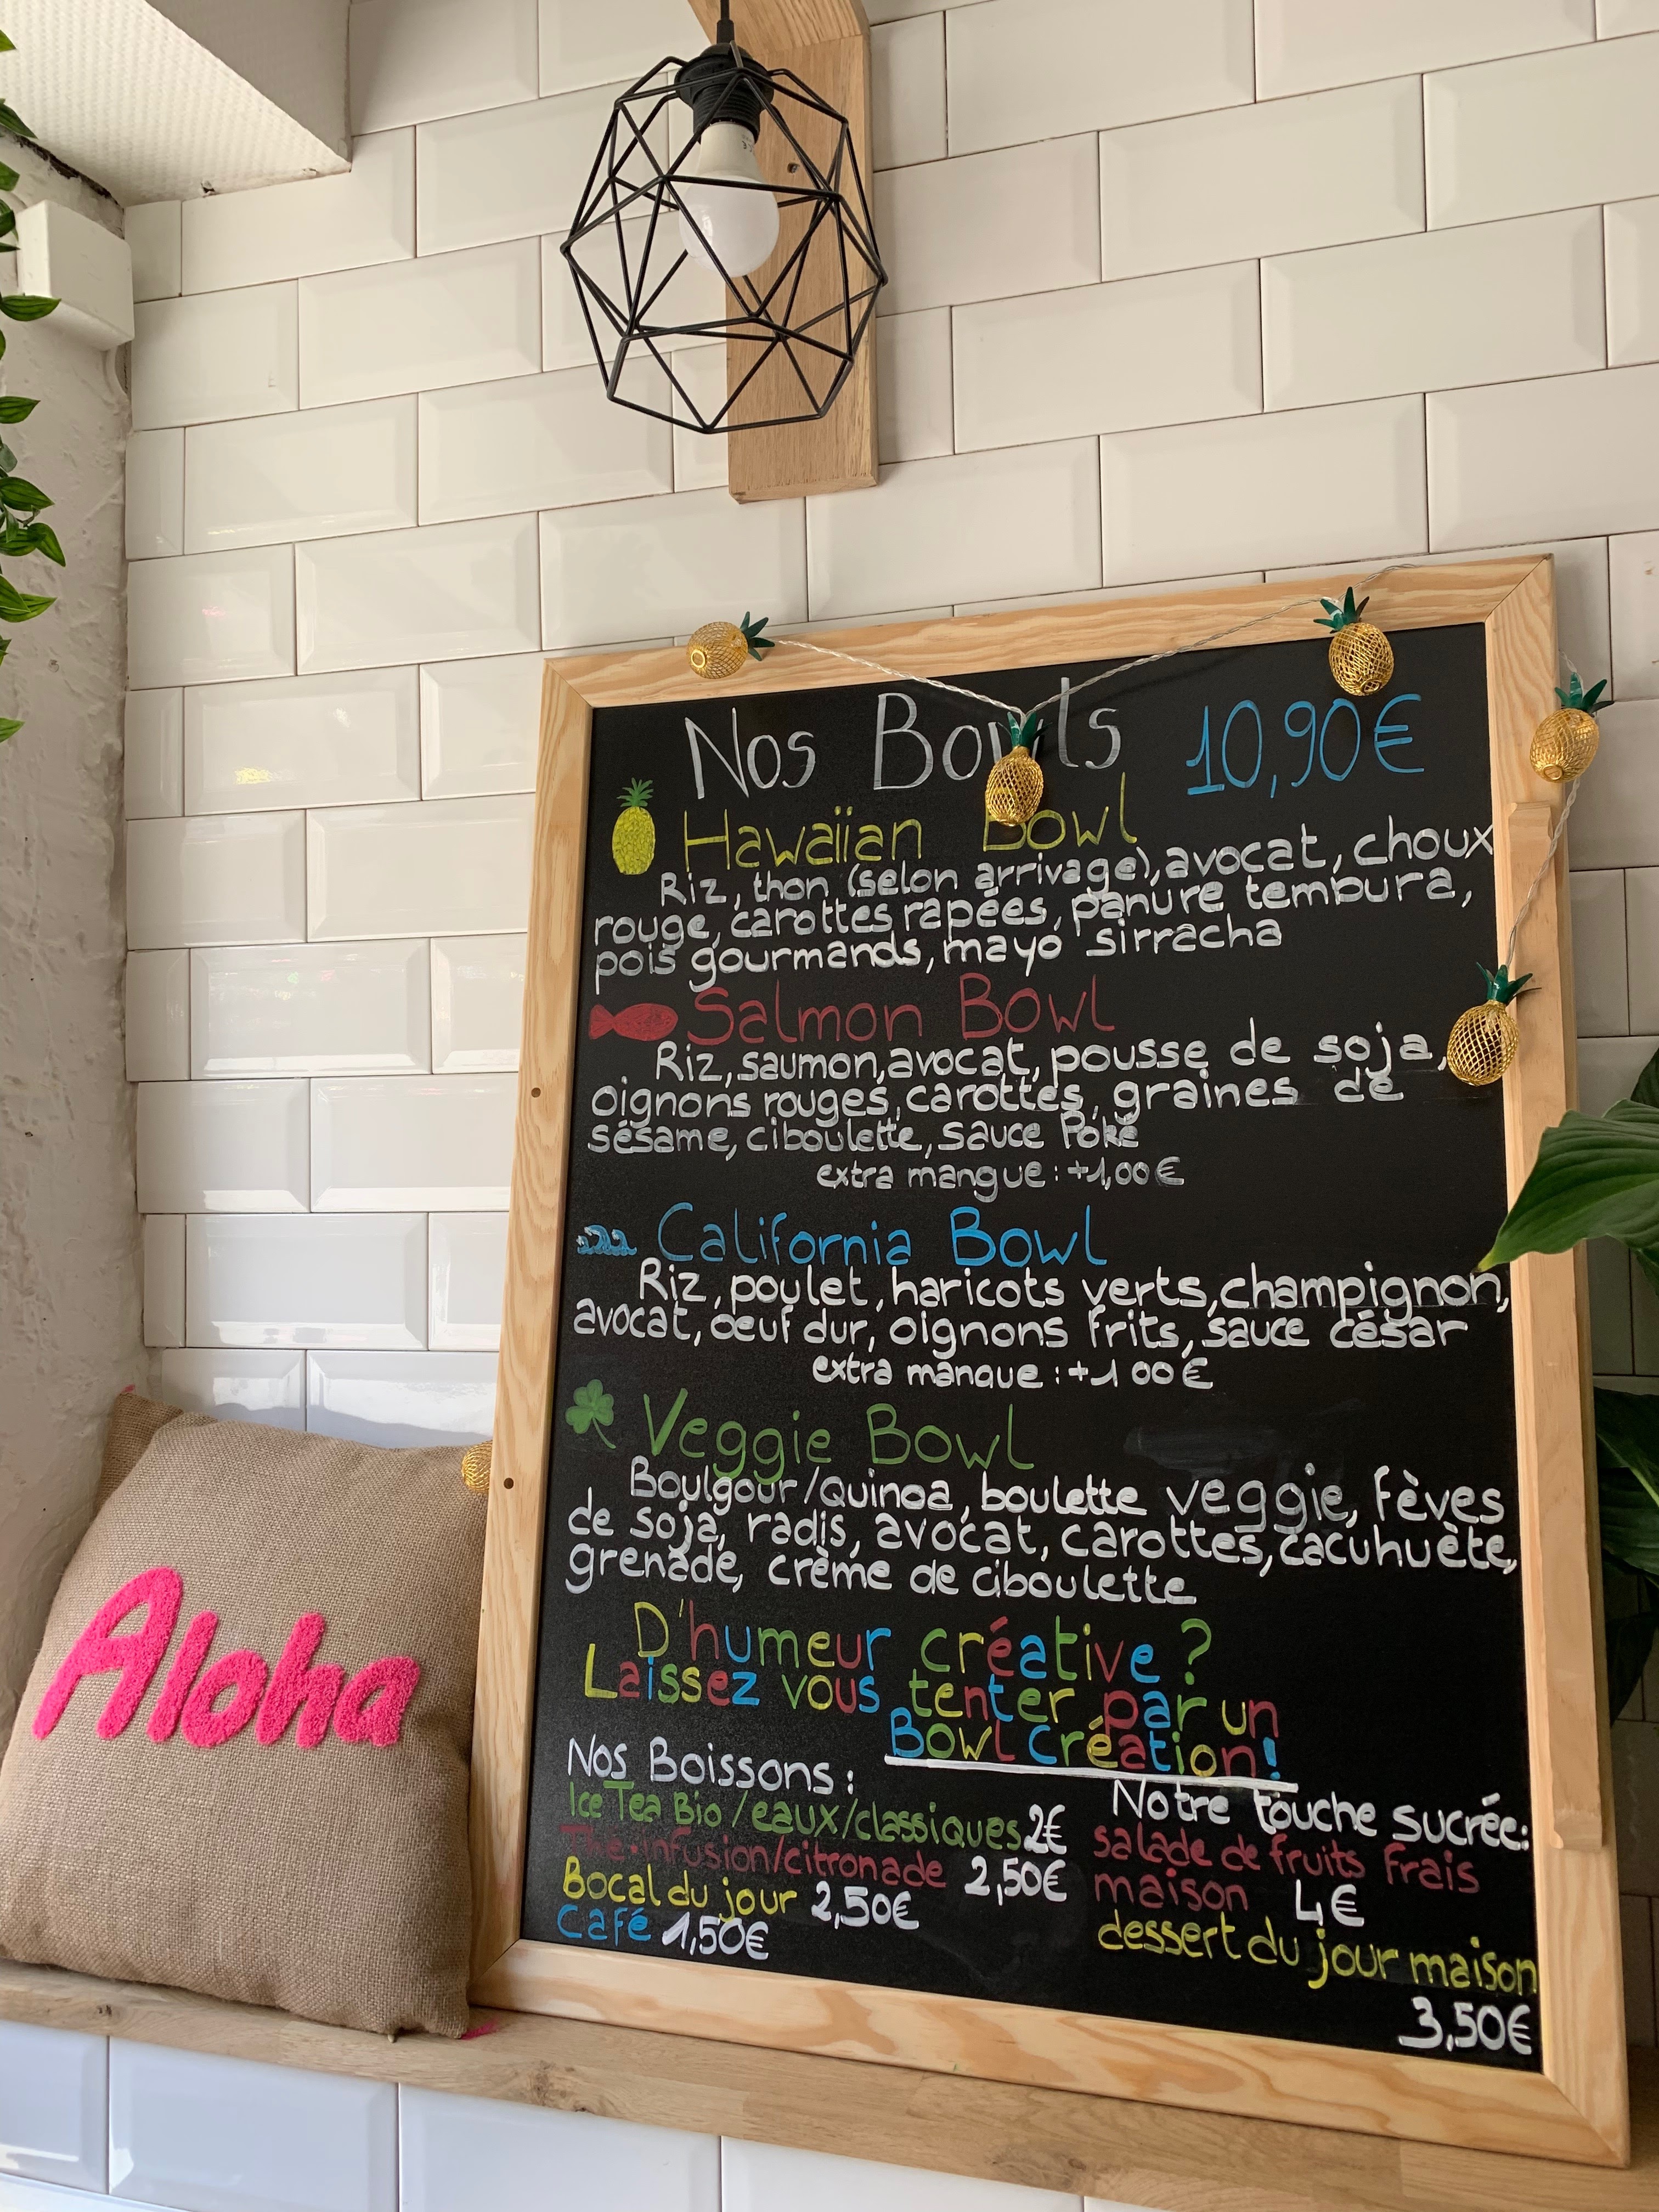 Nos Bowls 10,90€
Hawaiian Bowl
Riz, thon (selon arrivage), avocat, choux
rouge, carottes rapées, panure tempura,
pois gourmands, mayo sirracha
Salmon Bowl
Riz, saumon, avocat, pousse de soja,
oignons rouges, carottes, graines de
sésame, ciboulette, sauce Poké
extra mangue : +1,00€
California Bowl
Riz, poulet, haricots verts, champignon,
avocat, oeuf dur, oignons frits, sauce césar
extra mangue : +1 00€
Veggie Bowl
Boulgour/Quinoa, boulette veggie, fèves
de soja, radis, avocat, carottes, cacuhuète,
grenade, crème de ciboulette
D'humeur créative ?
Laissez vous tenter par un
Bowl Création!
Nos Boissons :
Ice Tea Bio /eaux/classiques 2€
Thé-infusion/citronade 2,50€
Bocal du jour 2,50€
Café 1,50€
Notre touche sucrée:
salade de fruits frais
maison 4€
dessert du jour maison
3,50€
Aloha